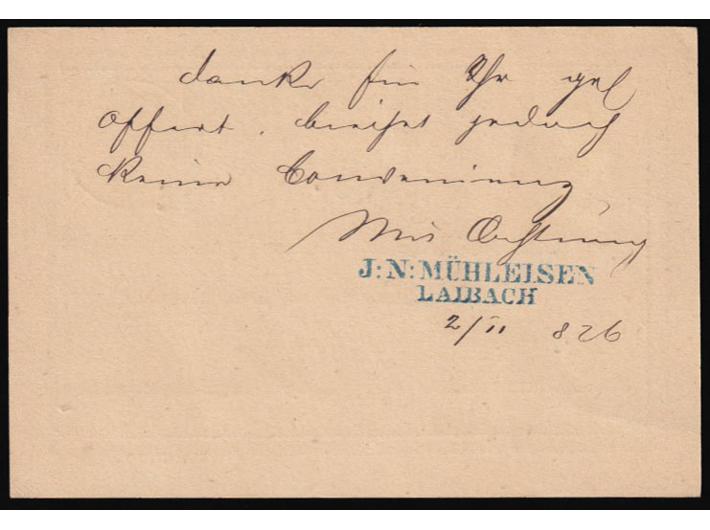 danke für Ihr gel
Offert. bietet jedoch
keine Convenienz
Mit Achtung
J: N: MÜHLEISEN
LAIBACH
2/II 826